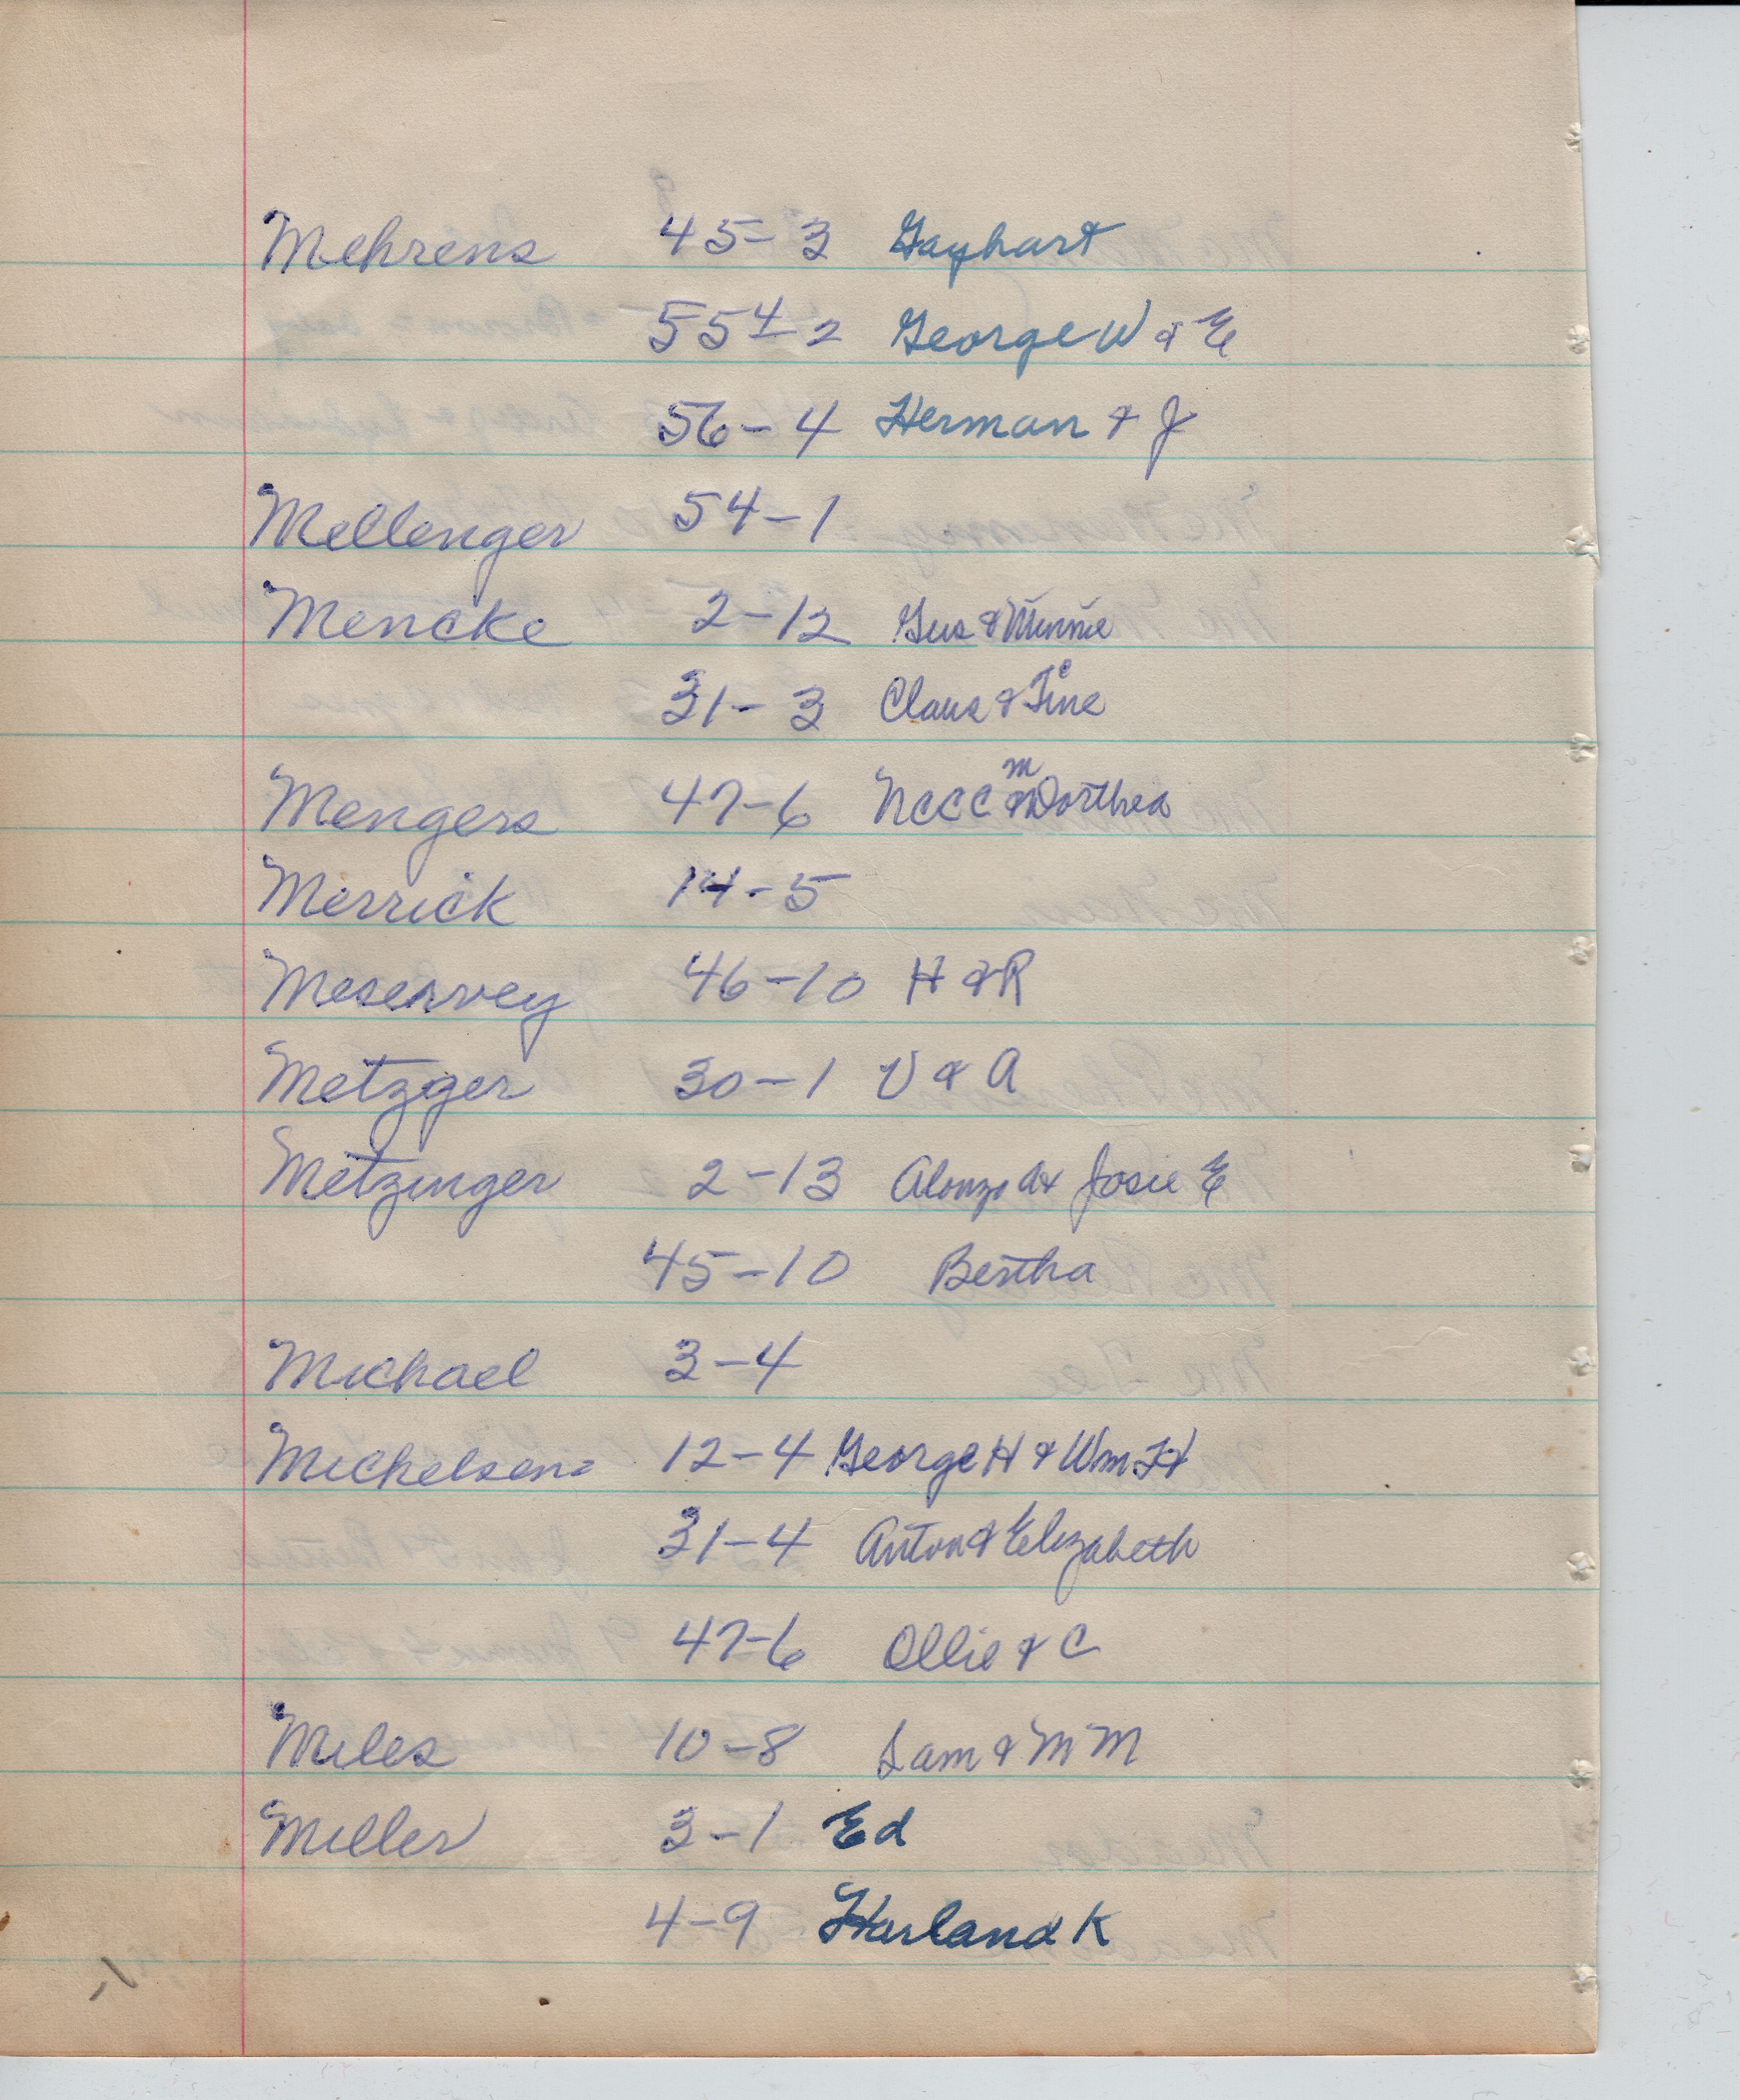 Mehrens 45-3 Gayhart
55 4-2 George W & E
56-4 Herman & J
Mellenger 54-1
Mencke 2-12 Gus & Minnie
31-3 Claus & Tine
Mengers 47-6 NCCC & M Dorthea
Merrick 14-5
Meservey 46-10 H & R
Metzger 30-1 V & A
Metzinger 2-13 Alonzo A & Josie E
45-10 Bertha
Michael 3-4
Michelsen 12-4 George H & Wm H
31-4 Anton & Elizabeth
47-6 Ollie & C
Miles 10-8 Sam & M M
Miller 3-1 Ed
4-9 Harland K